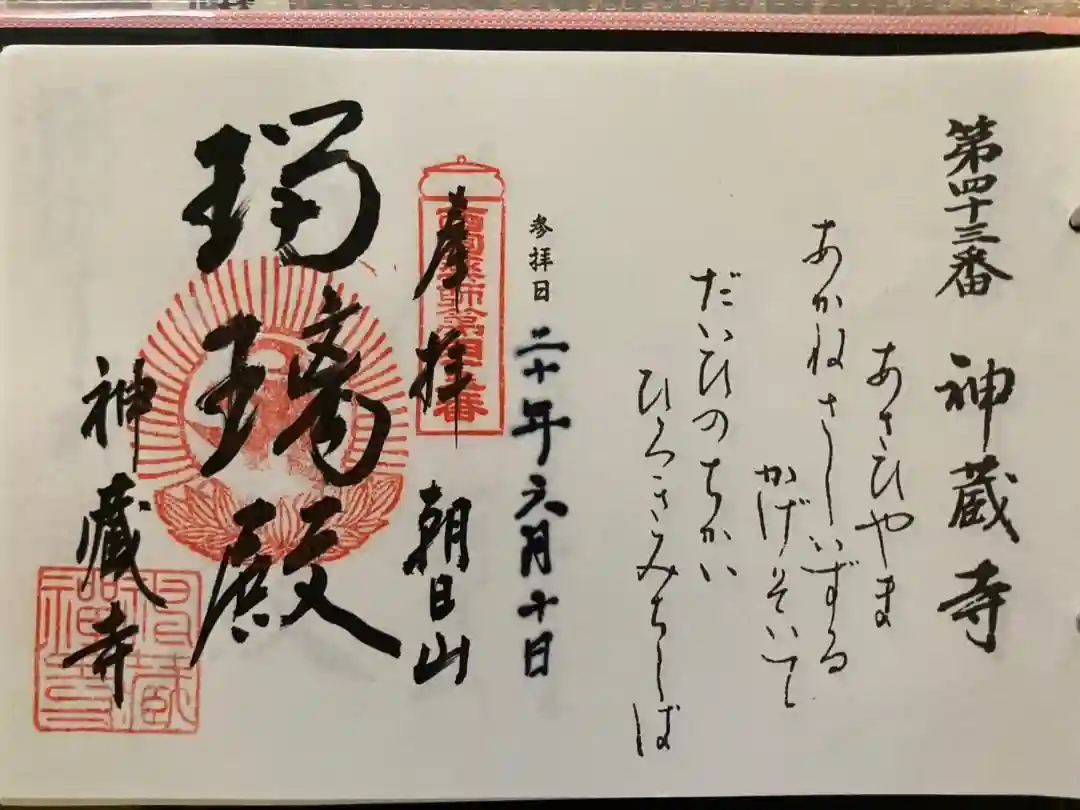 第四十三番 神蔵寺
あさひやま
あかねさしいずる
かげそいて
だいひのちかい
ひろきみちしば
参拝日 二十年六月十日
奉拝 朝日山
瑠璃殿
神蔵寺